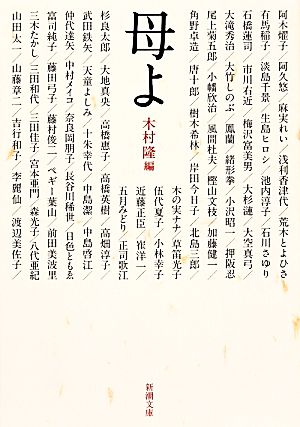 母よ
木村隆 編
阿木燿子／阿久悠／麻実れい／浅利香津代／荒木とよひさ
有馬稲子／淡島千景／生島ヒロシ／池内淳子／石川さゆり
石橋蓮司／市川右近／梅沢富美男／大杉漣／大空真弓
大滝秀治／大竹しのぶ／鳳蘭／緒形拳／小沢昭一／押阪忍
尾上菊五郎／小幡欣治／風間杜夫／樫山文枝／加藤健一
角野卓造／唐十郎／樹木希林／岸田今日子／北島三郎
木の実ナナ／草笛光子
伍代夏子／小林幸子
近藤正臣／崔洋一
五月みどり／正司歌江
杉良太郎／大地真央／高橋惠子／高橋英樹／高畑淳子
武田鉄矢／天童よしみ／十朱幸代／中島潔／中島啓江
仲代達矢／中村メイコ／奈良岡朋子／長谷川稀世／日色ともゑ
富司純子／藤田弓子／藤村俊二／ペギー葉山／前田美波里
三木たかし／三田和代／三田佳子／宮本亜門／森光子／八代亜紀
山田太一／山藤章二／吉行和子／李麗仙／渡辺美佐子
新潮文庫